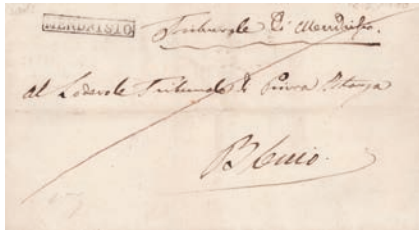 MENDRISIO
Tribunale di Mendrisio.
Al Lodevole Tribunale di Prima Istanza
Blenio.